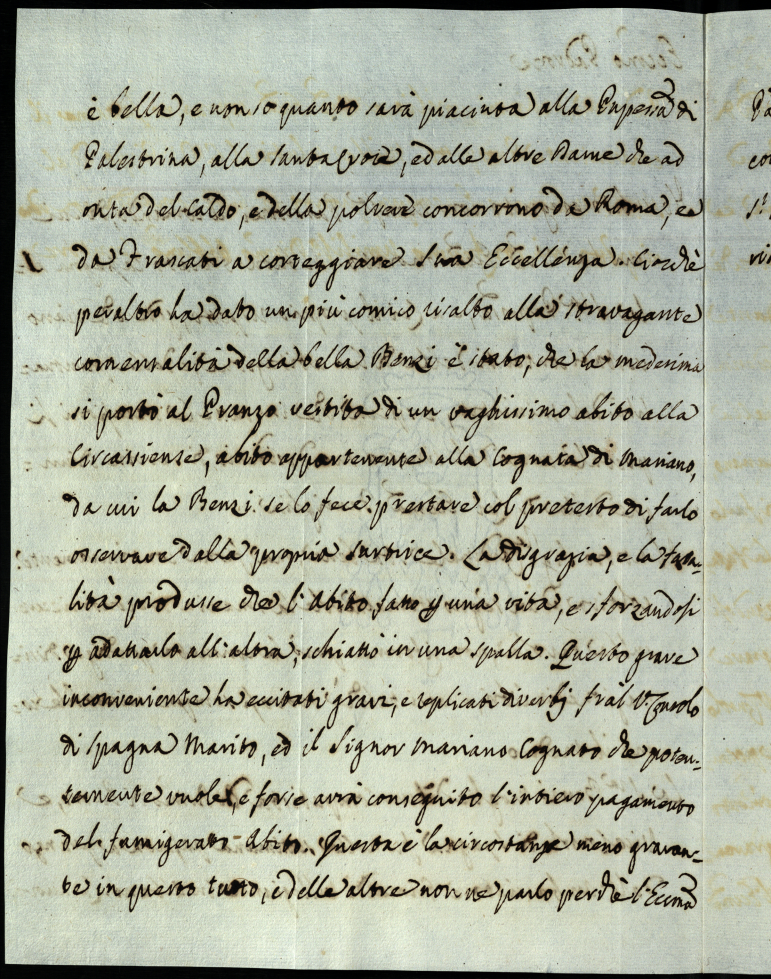 è bella, e non so quanto sarà piaciuta alla Pnpessa di
Palestrina, alla Santacroce, ed alle altre Dame che ad
onta del Caldo, e della polvere concorrono da Roma, e
da Frascati a corteggiare Sua Eccellenza. Ciocchè
peraltro ha dato un più comico risalto alla stravagante
comensalità della bella Benzi è stato, che la medesima
si portò al Pranzo vestita di un vaghissimo abito alla
Circassiense, abito appartenente alla Cognata di Mariano,
da cui la Benzi se lo fece prestare col pretesto di farlo
osservare dalla propria Sartrice. La disgrazia, e la fata-
lità produsse che l'Abito fatto p una vita, e sforzandosi
p adattarlo all'altra, schiattò in una spalla. Questo grave
inconveniente ha eccitati gravi, e replicati diverbj fral
di Spagna Marito, ed il Signor Mariano Cognato che poten-
temente vuole, e forse avrà conseguito l'intiero pagamento
del fumigerato Abito. Questa è la circostanza meno gravan-
te in questo tutto, e delle altre non ne parlo perchè l'Eccma